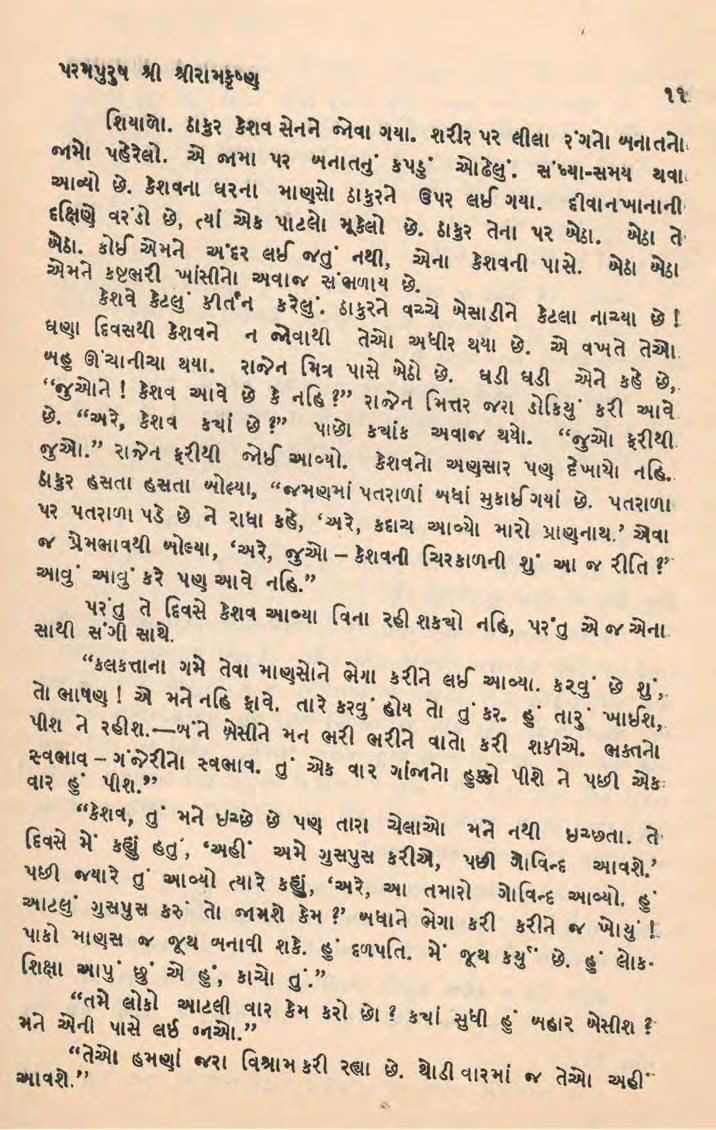 પરમપુરુષ શ્રી શ્રીરામકૃષ્ણ
૧૧
શિયાળો. ઠાકુર કેશવ સેનને જોવા ગયા. શરીર પર લીલા રંગનો બનાતનો
જામો પહેરેલો. એ જામા પર બનાતનું કપડું ઓઢેલું. સંધ્યા-સમય થવા
આવ્યો છે. કેશવના ઘરના માણસો ઠાકુરને ઉપર લઈ ગયા. દીવાનખાનાની
દક્ષિણે વરંડો છે, ત્યાં એક પાટલો મૂકેલો છે. ઠાકુર તેના પર બેઠા. બેઠા તે
બેઠા. કોઈ એમને અંદર લઈ જતું નથી, એના કેશવની પાસે. બેઠા બેઠા
એમને કષ્ટભરી ખાંસીનો અવાજ સંભળાય છે.
કેશવે કેટલું કીર્તન કરેલું. ઠાકુરને વચ્ચે બેસાડીને કેટલા નાચ્યા છે !
ઘણા દિવસથી કેશવને ન જોવાથી તેઓ અધીર થયા છે. એ વખતે તેઓ
બહુ ઊંચાનીચા થયા. રાજેન મિત્ર પાસે બેઠો છે. ઘડી ઘડી એને કહે છે,
“જુઓને ! કેશવ આવે છે કે નહિ ?” રાજેન મિત્તર જરા ડોકિયું કરી આવે
છે. “અરે, કેશવ કયાં છે ?” પાછો કયાંક અવાજ થયો. “જુઓ ફરીથી
જુઓ.” રાજેન ફરીથી જોઈ આવ્યો. કેશવનો અણસાર પણ દેખાયો નહિ.
ઠાકુર હસતા હસતા બોલ્યા, “જમણમાં પતરાળાં બધાં મુકાઈ ગયાં છે. પતરાળા
પર પતરાળા પડે છે ને રાધા કહે, ‘અરે, કદાચ આવ્યો મારો પ્રાણનાથ.’ એવા
જ પ્રેમભાવથી બોલ્યા, ‘અરે, જુઓ – કેશવની ચિરકાળની શું આ જ રીતિ ?’
આવું આવું કરે પણ આવે નહિ.”
પરંતુ તે દિવસે કેશવ આવ્યા વિના રહી શકયો નહિ, પરંતુ એ જ એના
સાથી સંગી સાથે.
“કલકત્તાના ગમે તેવા માણસોને ભેગા કરીને લઈ આવ્યા. કરવું છે શું,
તો ભાષણ ! એ મને નહિ ફાવે. તારે કરવું હોય તો તું કર. હું તારું ખાઈશ,
પીશ ને રહીશ.—બંને બેસીને મન ભરી ભરીને વાતો કરી શકીએ. ભક્તનો
સ્વભાવ – ગંજેરીનો સ્વભાવ. તું એક વાર ગાંજાનો હુક્કો પીશે ને પછી એક
વાર હું પીશ.”
“કેશવ, તું મને ઇચ્છે છે પણ તારા ચેલાઓ મને નથી ઇચ્છતા. તે
દિવસે મેં કહ્યું હતું, ‘અહીં અમે ગુસપુસ કરીએ, પછી ગોવિન્દ આવશે.’
પછી જયારે તું આવ્યો ત્યારે કહ્યું, ‘અરે, આ તમારો ગોવિન્દ આવ્યો. હું
આટલું ગુસપુસ કરું તો જામશે કેમ ?’ બધાને ભેગા કરી કરીને જ ખોયું !
પાકો માણસ જ જૂથ બનાવી શકે. હું દળપતિ. મેં જૂથ કર્યું છે. હું લોક-
શિક્ષા આપું છું એ હું, કાચો તું.”
“તમે લોકો આટલી વાર કેમ કરો છો ? કયાં સુધી હું બહાર બેસીશ ?
મને એની પાસે લઈ જાઓ.”
“તેઓ હમણાં જરા વિશ્રામ કરી રહ્યા છે. થોડી વારમાં જ તેઓ અહીં
આવશે.”